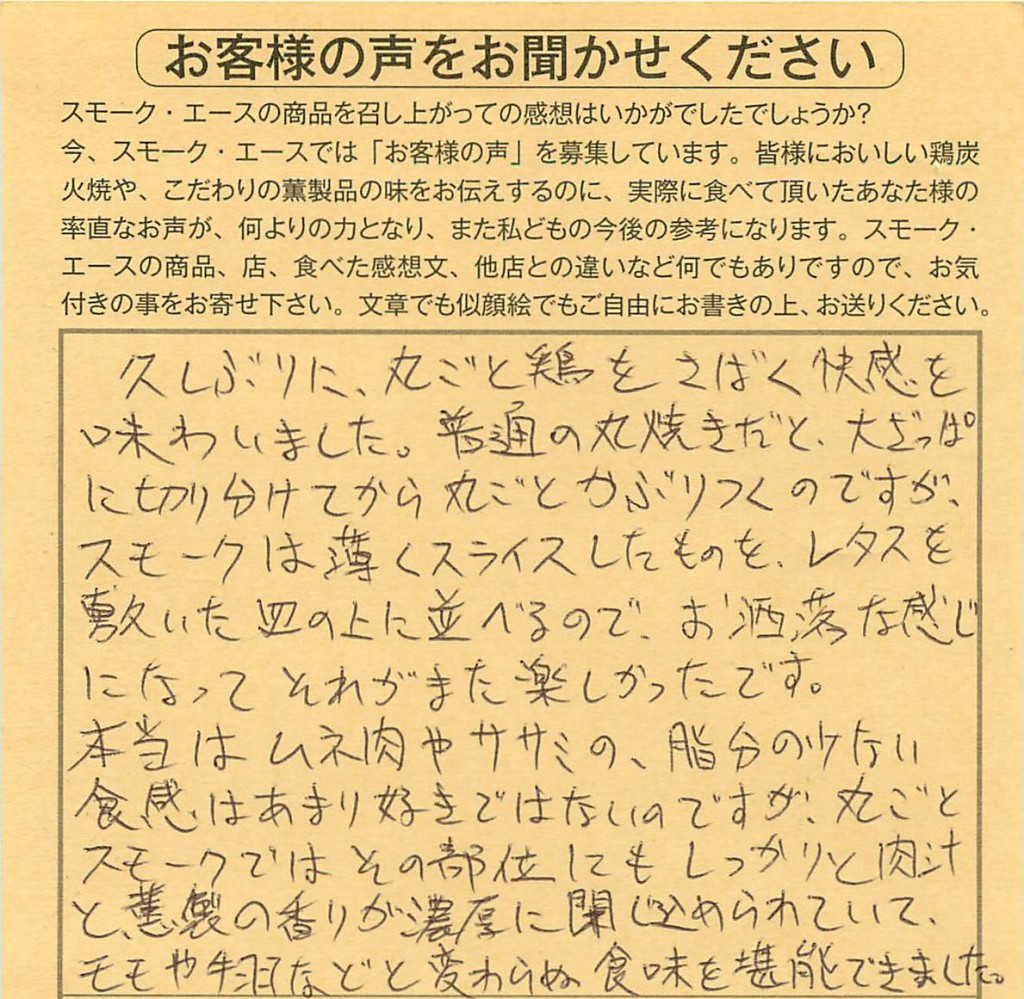 お客様の声をお聞かせください
スモーク・エースの商品を召し上がっての感想はいかがでしたでしょうか?
今、スモーク・エースでは「お客様の声」を募集しています。皆様においしい鶏炭
火焼や、こだわりの薫製品の味をお伝えするのに、実際に食べて頂いたあなた様の
率直なお声が、何よりの力となり、また私どもの今後の参考になります。スモーク・
エースの商品、店、食べた感想文、他店との違いなど何でもありですので、お気
付きの事をお寄せ下さい。文章でも似顔絵でもご自由にお書きの上、お送りください。
久しぶりに、丸ごと鶏をさばく快感を
味わいました。普通の丸焼きだと、大ざっぱ
に切り分けてから丸ごとかぶりつくのですが、
スモークは薄くスライスしたものを、レタスを
敷いた皿の上に並べるので、お洒落な感じ
になってそれがまた楽しかったです。
本当はムネ肉やササミの、脂分の少ない
食感はあまり好きではないのですが、丸ごと
スモークではその部位にもしっかりと肉汁
と、薫製の香りが濃厚に閉じ込められていて、
モモや手羽などと変わらぬ食味を堪能できました。